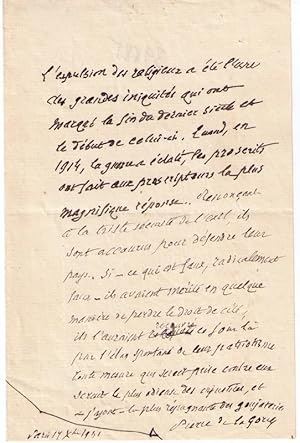 L'expulsion des religieux a été l'une
des grandes iniquités qui ont
marqué la fin du dernier siècle et
le début de celui-ci. Quand, en
1914, la guerre a éclaté, les proscrits
ont fait aux proscripteurs la plus
magnifique réponse. Renonçant
à la triste sécurité de l'exil ils
sont accourus pour défendre leur
pays. Si - ce qui est faux, radicalement
faux - ils avaient mérité en quelque
manière de perdre le droit de cité,
ils l'auraient reconquis ce jour là
par l'élan spontané de leur patriotisme
Toute mesure qui serait prise contre eux
serait la plus odieuse des injustices, et
- j'ajoute - la plus répugnante des
Pierre de la Gorce
Paris 17 Xbre 1921